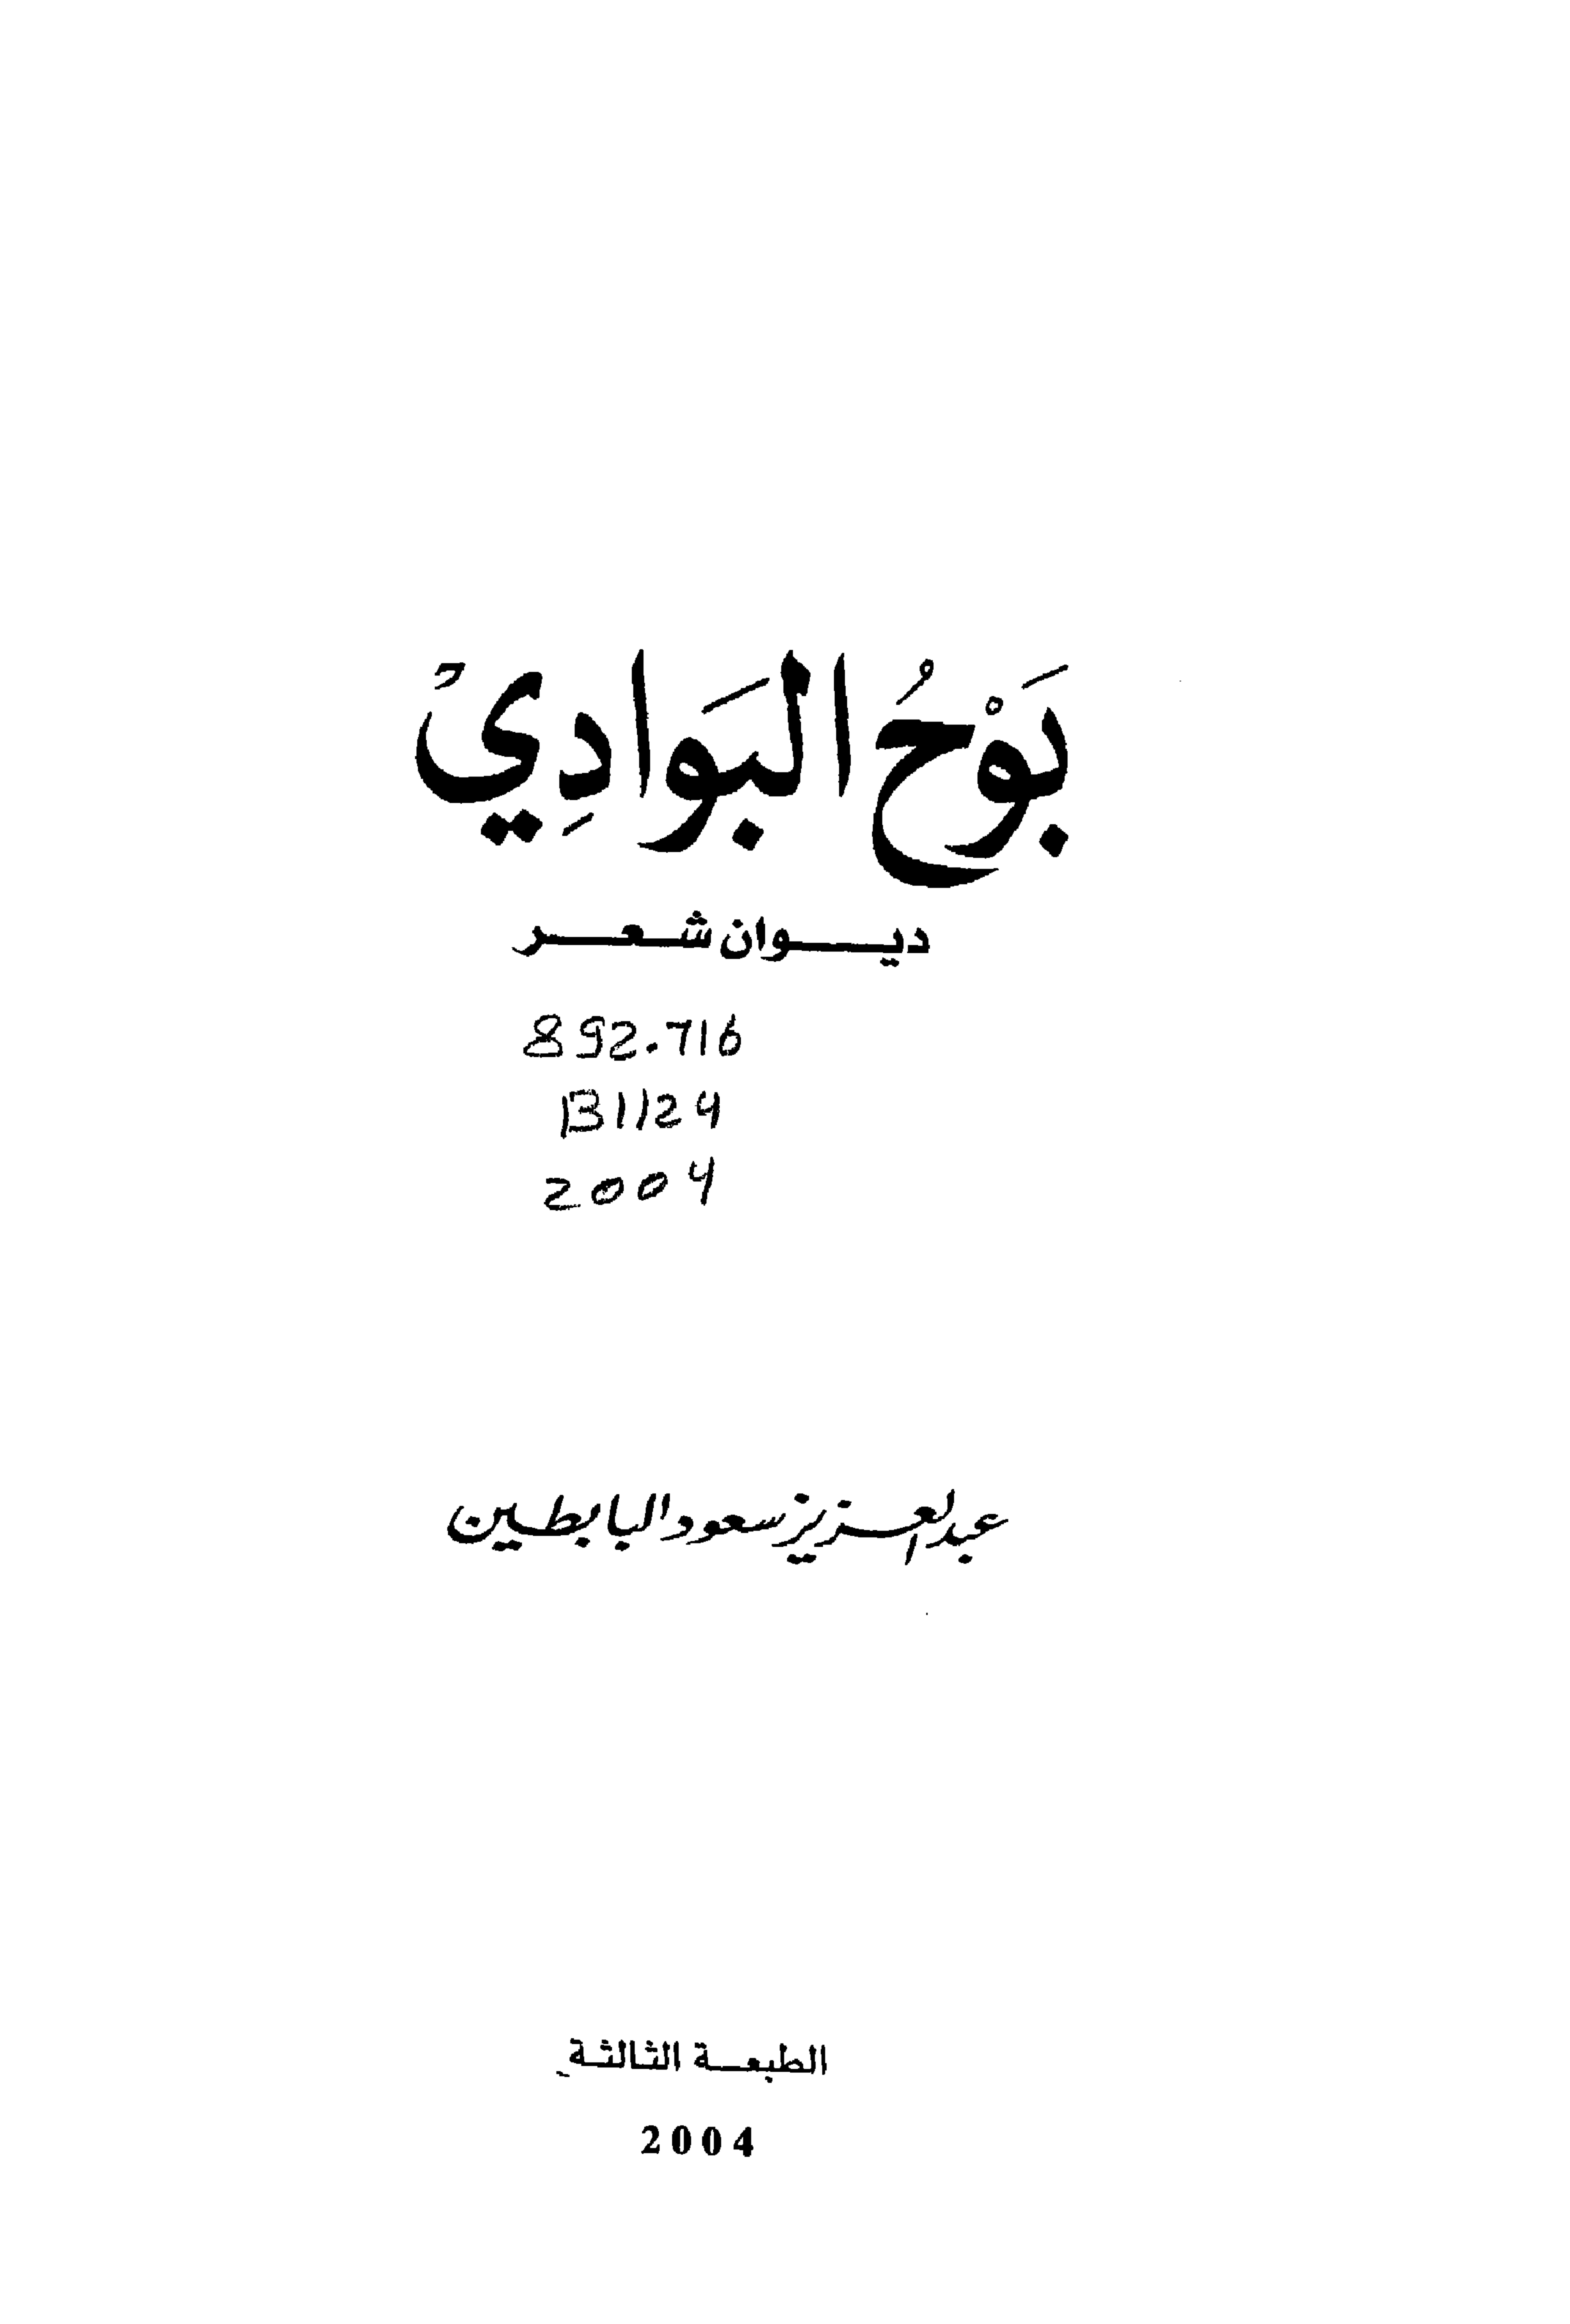 بَوْحُ البَوادِيْ
ديوان شعر
892.716
B1124
2004
عبدالعزيز سعود البابطين
الطبعة الثالثة
2004